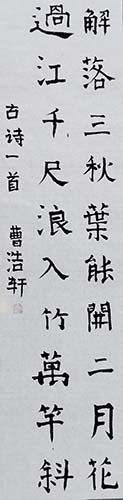 解落三秋葉能開二月花
過江千尺浪入竹萬竿斜
古诗一首 曹浩轩